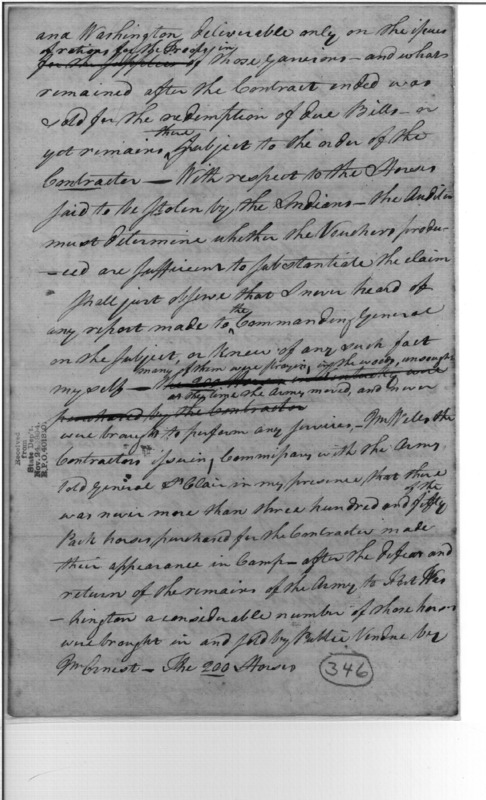 and Washington deliverable only on the issues
of rations for the Troops in
for the supplies of those garrisons — and what
remained after the Contract ended was
sold for the redemption of due Bills — or
yet remains there, subject to the order of the
Contractor — With respect to the Horses
said to be stolen by the Indians — the Auditor
must determine whether the Vouchers produ-
-ced are sufficient to substantiate the claim
shall just observe that I never heard of
any report made to the Commanding General
on the subject, or knew of any such fact
many of them were straying in the woods, unsought
my self — The 200 Horses
at the time the Army moved, and never
purchased by the Contractor
were brought to perform any services, — Mr Wells the
Contractors issuing Commissary with the Army
told General St Clair in my presence that there
was never more than three hundred and fifty of the
Pack horses purchased for the Contractor made
their appearance in Camp — after the defeat and
return of the remains of the Army to Fort Was
-hington a considerable number of those horses
were brought in and sold by Public Vendue by
Mr Ernest — The 200 Horses
346
Received
from
State Dep't.